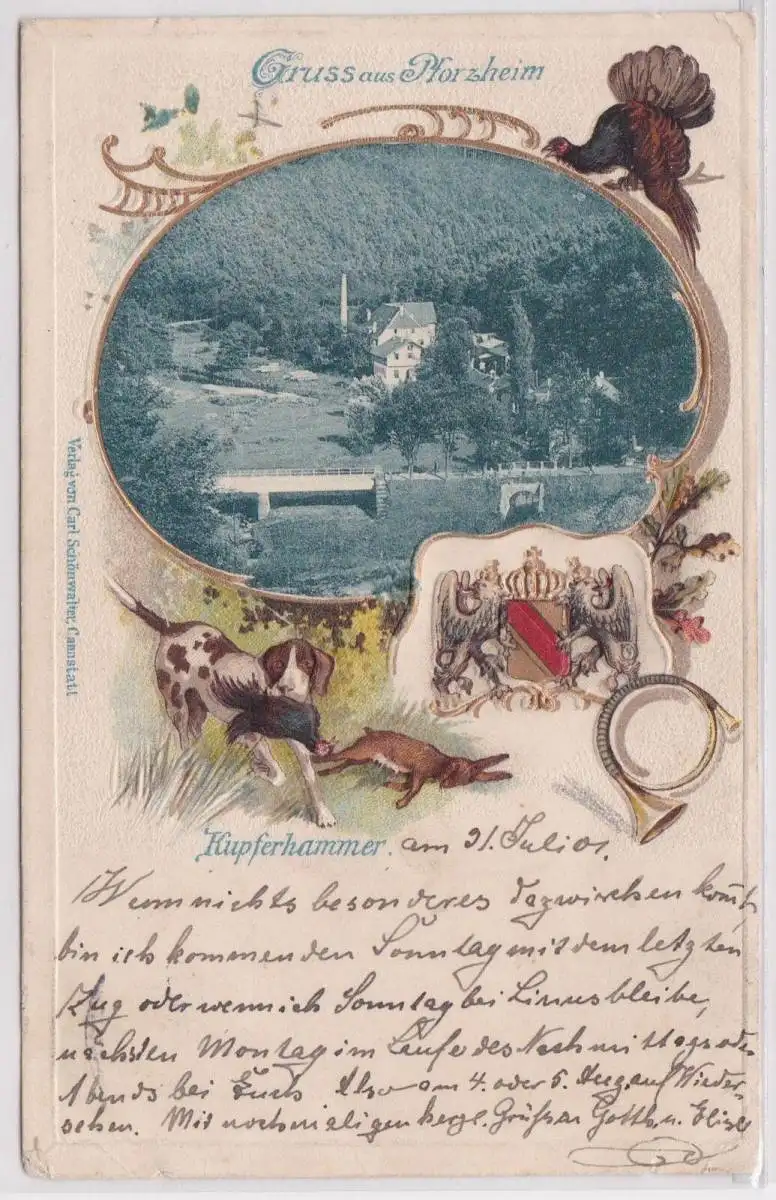 Gruss aus Pforzheim
Verlag von Carl Schönwalter, Cannstatt
Kupferhammer. am 31. Juli 01.
Wenn nichts besonderes dazwischen kommt,
bin ich kommenden Sonntag mit dem letzten
Zug oder wenn ich Sonntag bei Linus bleibe,
nächsten Montag im Laufe des Nachmittags oder
Abends bei Euch Also am 4. oder 5. Aug. auf Wieder-
sehen. Mit nochmaligen herzl. Grüßen Gotth. u.